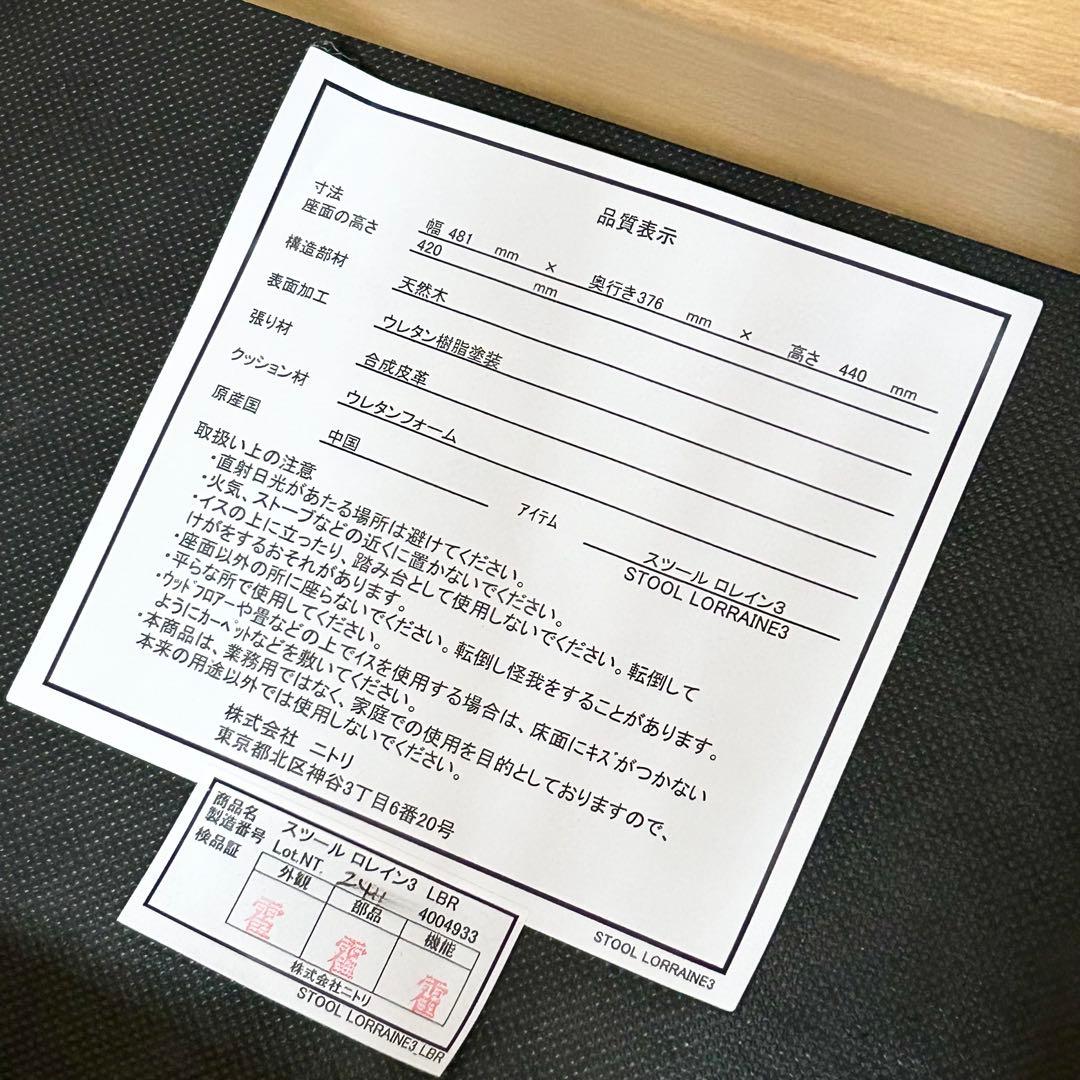 品質表示
寸法 幅 481 mm × 奥行き376 mm × 高さ 440 mm
座面の高さ 420 mm
構造部材 天然木
表面加工 ウレタン樹脂塗装
張り材 合成皮革
クッション材 ウレタンフォーム
原産国 中国
アイテム スツール ロレイン3
STOOL LORRAINE3
取扱い上の注意
・直射日光があたる場所は避けてください。
・火気、ストーブなどの近くに置かないでください。
・イスの上に立ったり、踏み台として使用しないでください。転倒して
けがをするおそれがあります。
・座面以外の所に座らないでください。転倒し怪我をすることがあります。
・平らな所で使用してください。
・ウッドフロアーや畳などの上でイスを使用する場合は、床面にキズがつかない
ようにカーペットなどを敷いてください。
・本商品は、業務用ではなく、家庭での使用を目的としておりますので、
本来の用途以外では使用しないでください。
株式会社 ニトリ
東京都北区神谷3丁目6番20号
STOOL LORRAINE3
商品名 スツール ロレイン3 LBR
製造番号 Lot.NT. 2411 4004933
検品証 外観 部品 機能
株式会社ニトリ
STOOL LORRAINE3_LBR